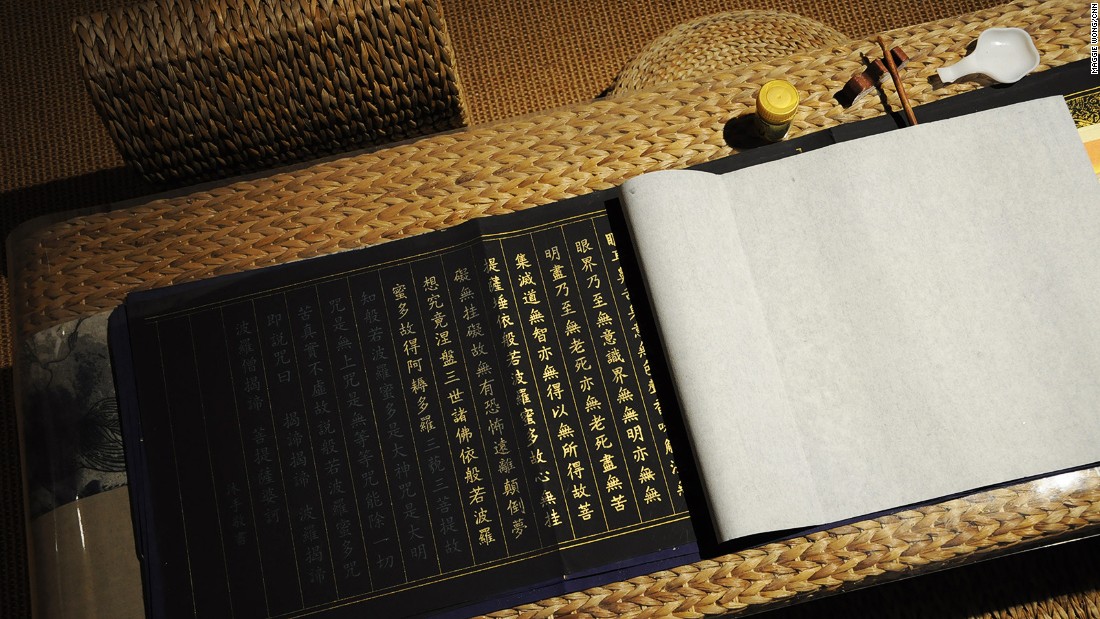 意無色聲香味觸法
眼界乃至無意識界無無明亦無無
明盡乃至無老死亦無老死盡無苦
集滅道無智亦無得以無所得故菩
提薩埵依般若波羅蜜多故心無挂
礙無挂礙故無有恐怖遠離顛倒夢
想究竟涅盤三世諸佛依般若波羅
蜜多故得阿耨多羅三藐三菩提故
知般若波羅蜜多是大神咒是大明
咒是無上咒是無等等咒能除一切
苦真實不虛故說般若波羅蜜多咒
即說咒曰 揭諦揭諦 波羅揭諦
波羅僧揭諦 菩提薩婆訶
MAGGIE WONG/CNN